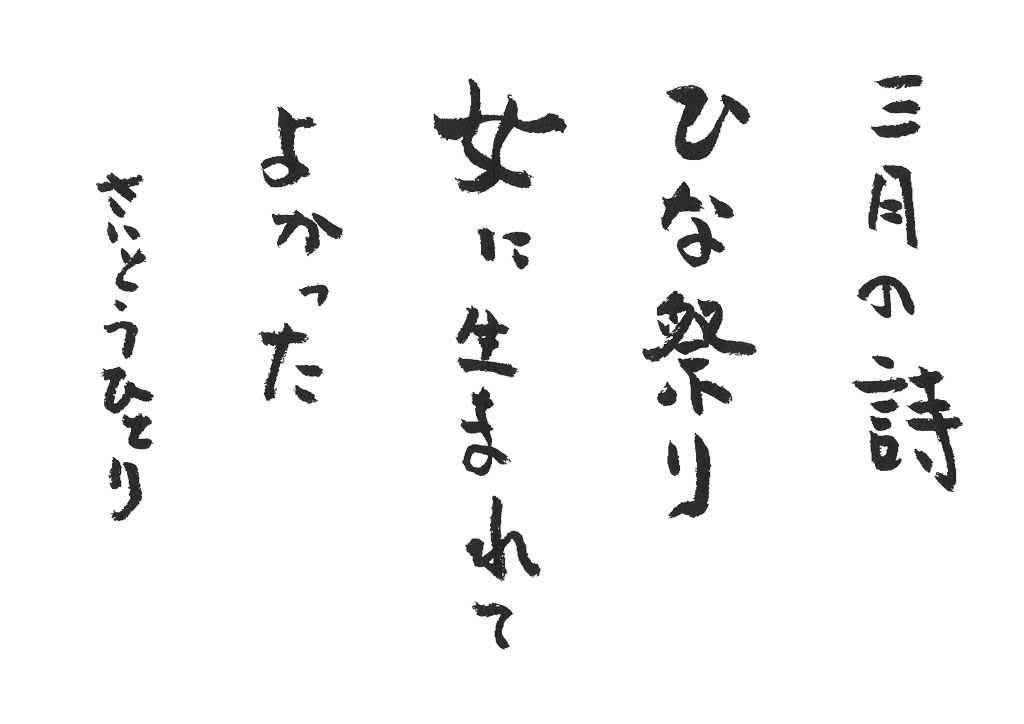 三月の詩
ひな祭り
女に生まれて
よかった
さいとうひとり